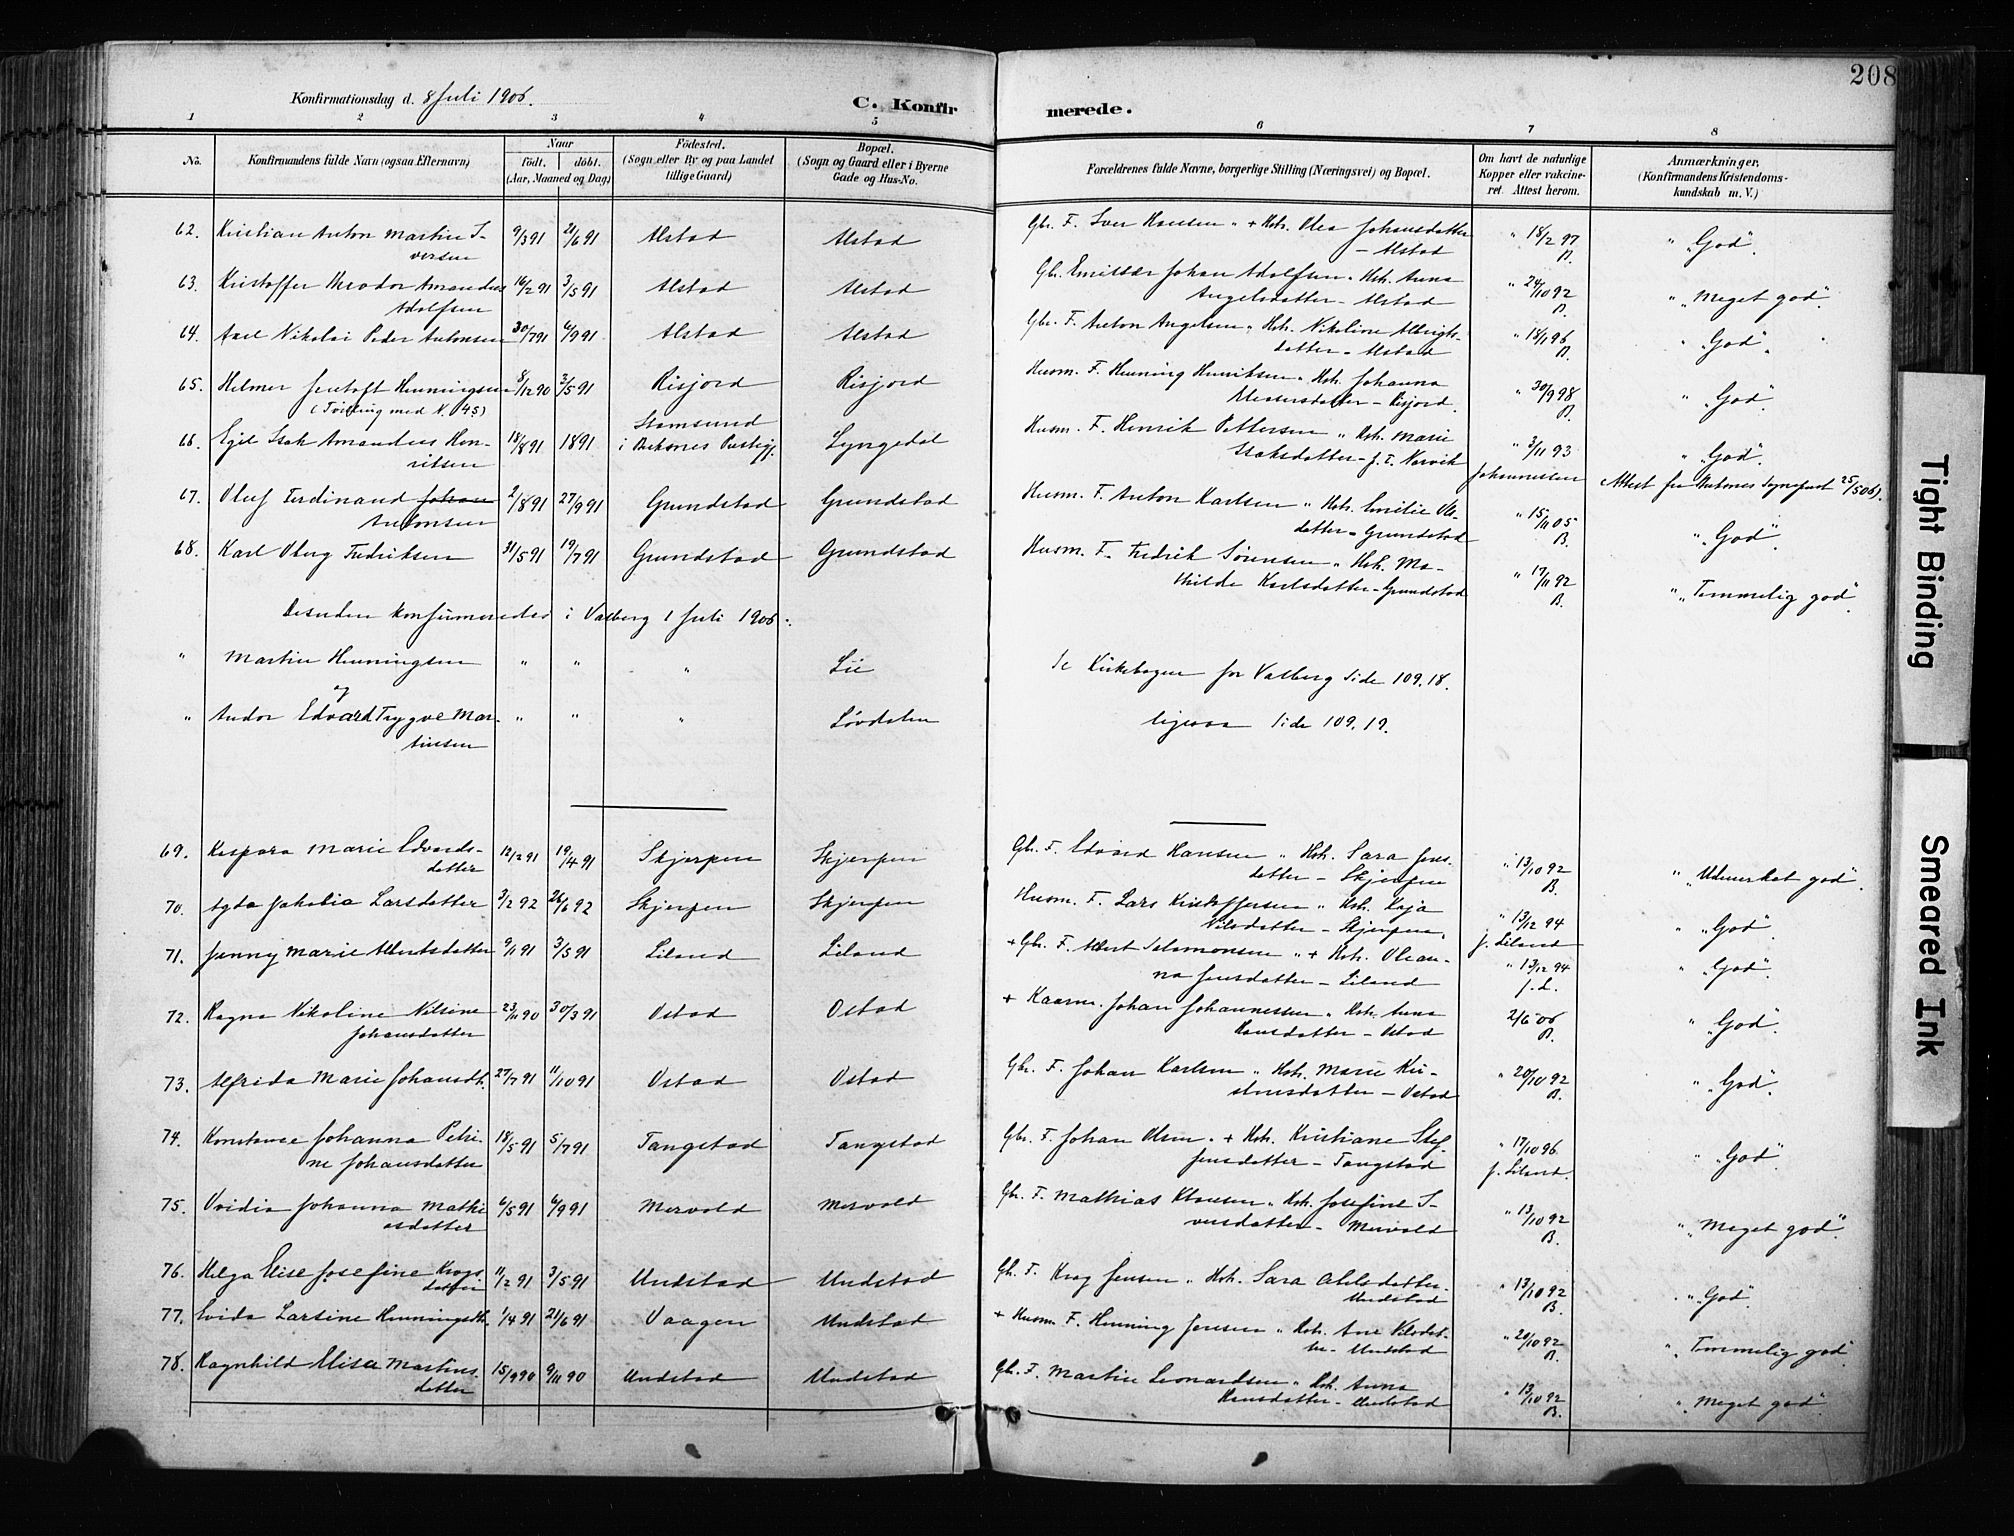 208
Konfirmationsdag d. 8 Juli 1906.
C. Konfir
merede.
1 2 3 4 5 6 7 8
No. Konfirmandens fulde Navn (ogsaa Efternavn) Naar født. døbt. (Aar, Maaned og Dag) Fødested. (Sogn eller By og paa Landet tillige Gaard) Bopæl. (Sogn og Gaard eller i Byerne Gade og Hus-No. Forældrenes fulde Navne, borgerlige Stilling (Næringsvei) og Bopæl. Om havt de naturlige Kopper eller vakcineret. Attest herom. Anmærkninger, (Konfirmandens Kristendomskundskab m. V.)
62. Kristian Anton Martin I- 9/3 91 21/6 91 Alstad Alstad Gbr. F. Iver Hansen " + Hstr. Olea Johansdatter " 18/2 97 " "God".
versen – Alstad B.
63. Kristoffer Theodor Amandus 16/2 91 3/5 91 Alstad Alstad Gbr. Emissær Johan Adolfsen " Hstr. Anna " 24/10 92 " "Meget god".
Adolfsen Angelsdatter – Alstad B.
64. Axel Nikolai Peder Antonsen 30/7 91 6/9 91 Alstad Alstad Gbr. F. Anton Angelsen " Hstr. Nikoline Albrigts- " 18/1 96 " "God".
datter – Alstad B.
65. Helmer Jentoft Henningsen 8/12 90 3/5 91 Risjord Risjord Husm. F. Henning Henriksen " Hstr. Johanna " 30/9 98 " "God".
(Tvilling med N. 45) – Risjord. B.
Stamsund
66. Egil Isak Amandus Hen- 18/8 91 1891 i Buksnes Prestegj. Lyngedal Husm. F. Henrik Pettersen " Hstr. Marie " 3/11 93 " "God".
riksen Isaksdatter – f. T. Narvik Johannessen Attest fra 25/5 06).
67. Oluf Ferdinand Johan 2/8 91 27/9 91 Grundstad Grundstad Husm. F. Anton Karlsen " Hstr. Emilie Ols- " 15/11 05 " "God".
Antonsen datter – Grundstad B.
68. Karl Oberg Fredriksen 31/5 91 19/7 91 Grundstad Grundstad Husm. F. Fredrik Sørensen " Hstr. Ma- " 17/11 92 " "Temmelig god".
thilde Karlsdatter – Grundstad B.
Desuden konfirmeredes i Valberg 1 Juli 1906:
" Martin Henningsen " " " Lie Se Kirkebogen for Valberg Side 109. 18.
og
" Andor Edvard Trygve Mar- " " " Løvdalen ligesaa Side 109. 19.
tinsen
69. Kaspara Marie Edvards- 12/2 91 19/4 91 Skjerpen Skjerpen Gbr. F. Edvard Hansen " Hstr. Sara Jens- " 13/10 92 " "Udmerket god".
datter datter – Skjerpen B.
70. Agda Jakobia Larsdatter 3/2 92 26/6 92 Skjerpen Skjerpen Husm. F. Lars Kristoffersen " Hstr. Kaja " 13/12 94 " "God".
Nilsdatter – Skjerpen. J. Liland
71. Jenny Marie Albertsdatter 9/1 91 3/5 91 Liland Liland + Gbr. F. Albert Salamonsen " + Hstr. Olean- " 13/12 94 " "God".
na Jensdatter – Liland J. L.
72. Ragna Nikoline Nilsine 23/11 90 30/3 91 Ostad Ostad + Kaarm. Johan Johannessen " Hstr. Anna 2/6 06 " "God".
Johansdatter Hansdatter – Ostad B.
73. Alfrida Marie Johansdtr. 27/7 91 11/10 91 Ostad Ostad Gbr. F. Johan Karlsen " Hstr. Marie Kri- " 20/10 92 " "God".
stensdatter – Ostad B.
74. Konstanse Johanna Petri- 18/5 91 5/7 91 Tangstad Tangstad Gbr. F. Johan Olsen " + Hstr. Kristiane Stef- " 17/10 96 " "God".
ne Johansdatter fensdatter – Tangstad J. Liland.
75. Ovidia Johanna Mathi- 6/5 91 6/9 91 Mervold Mervold Gbr. F. Mathias Klausen " Hstr. Josefine I- " 13/10 92 " "Meget god".
asdatter versdatter – Mervold B.
76. Helga Elise Josefine Krogs- 11/2 91 3/5 91 Undstad Undstad Gbr. F. Krog Jensen " Hstr. Sara Abelsdatter " 13/10 92 " "God".
datter Undstad B.
77. Evida Larsine Henningsdtr. 1/4 91 21/6 91 Vaagen Undstad + Husm. F. Henning Jensen " Hstr. Ane Nilsdat- " 20/10 92 " "Temmelig god".
ter – Undstad B.
78. Ragnhild Elisa Martins- 15/9 90 9/11 90 Undstad Undstad Gbr. F. Martin Leonardsen " Hstr. Anna " 13/10 92 " "Meget god".
datter Hansdatter – Undstad B.
Tight Binding
Smeared Ink